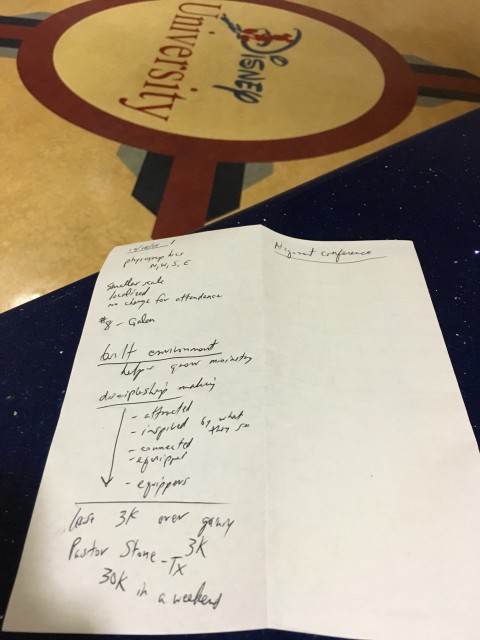 Disney
University
N, W, S, E
smaller scale
localized
no charge for attendance
#8 - Galen
built environment
helps grow ministry
discipleship making
- attracted
- inspired by what
they see
- connected
- equipped
- equippers
3K over
Pastor Stone - TX 3K
30K in a weekend
conference